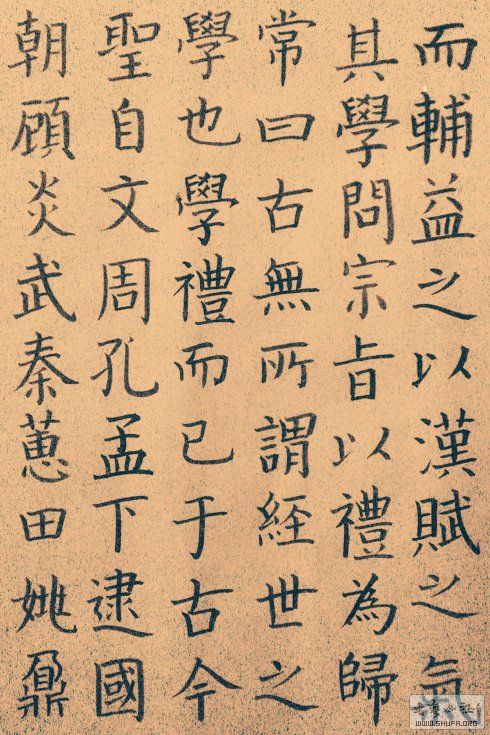 而輔益之以漢賦之氣
其學問宗旨以禮為歸
常曰古無所謂經世之
學也學禮而已于古今
聖自文周孔孟下逮國
朝顧炎武秦蕙田姚鼐
WWW.SHUFA.ORG